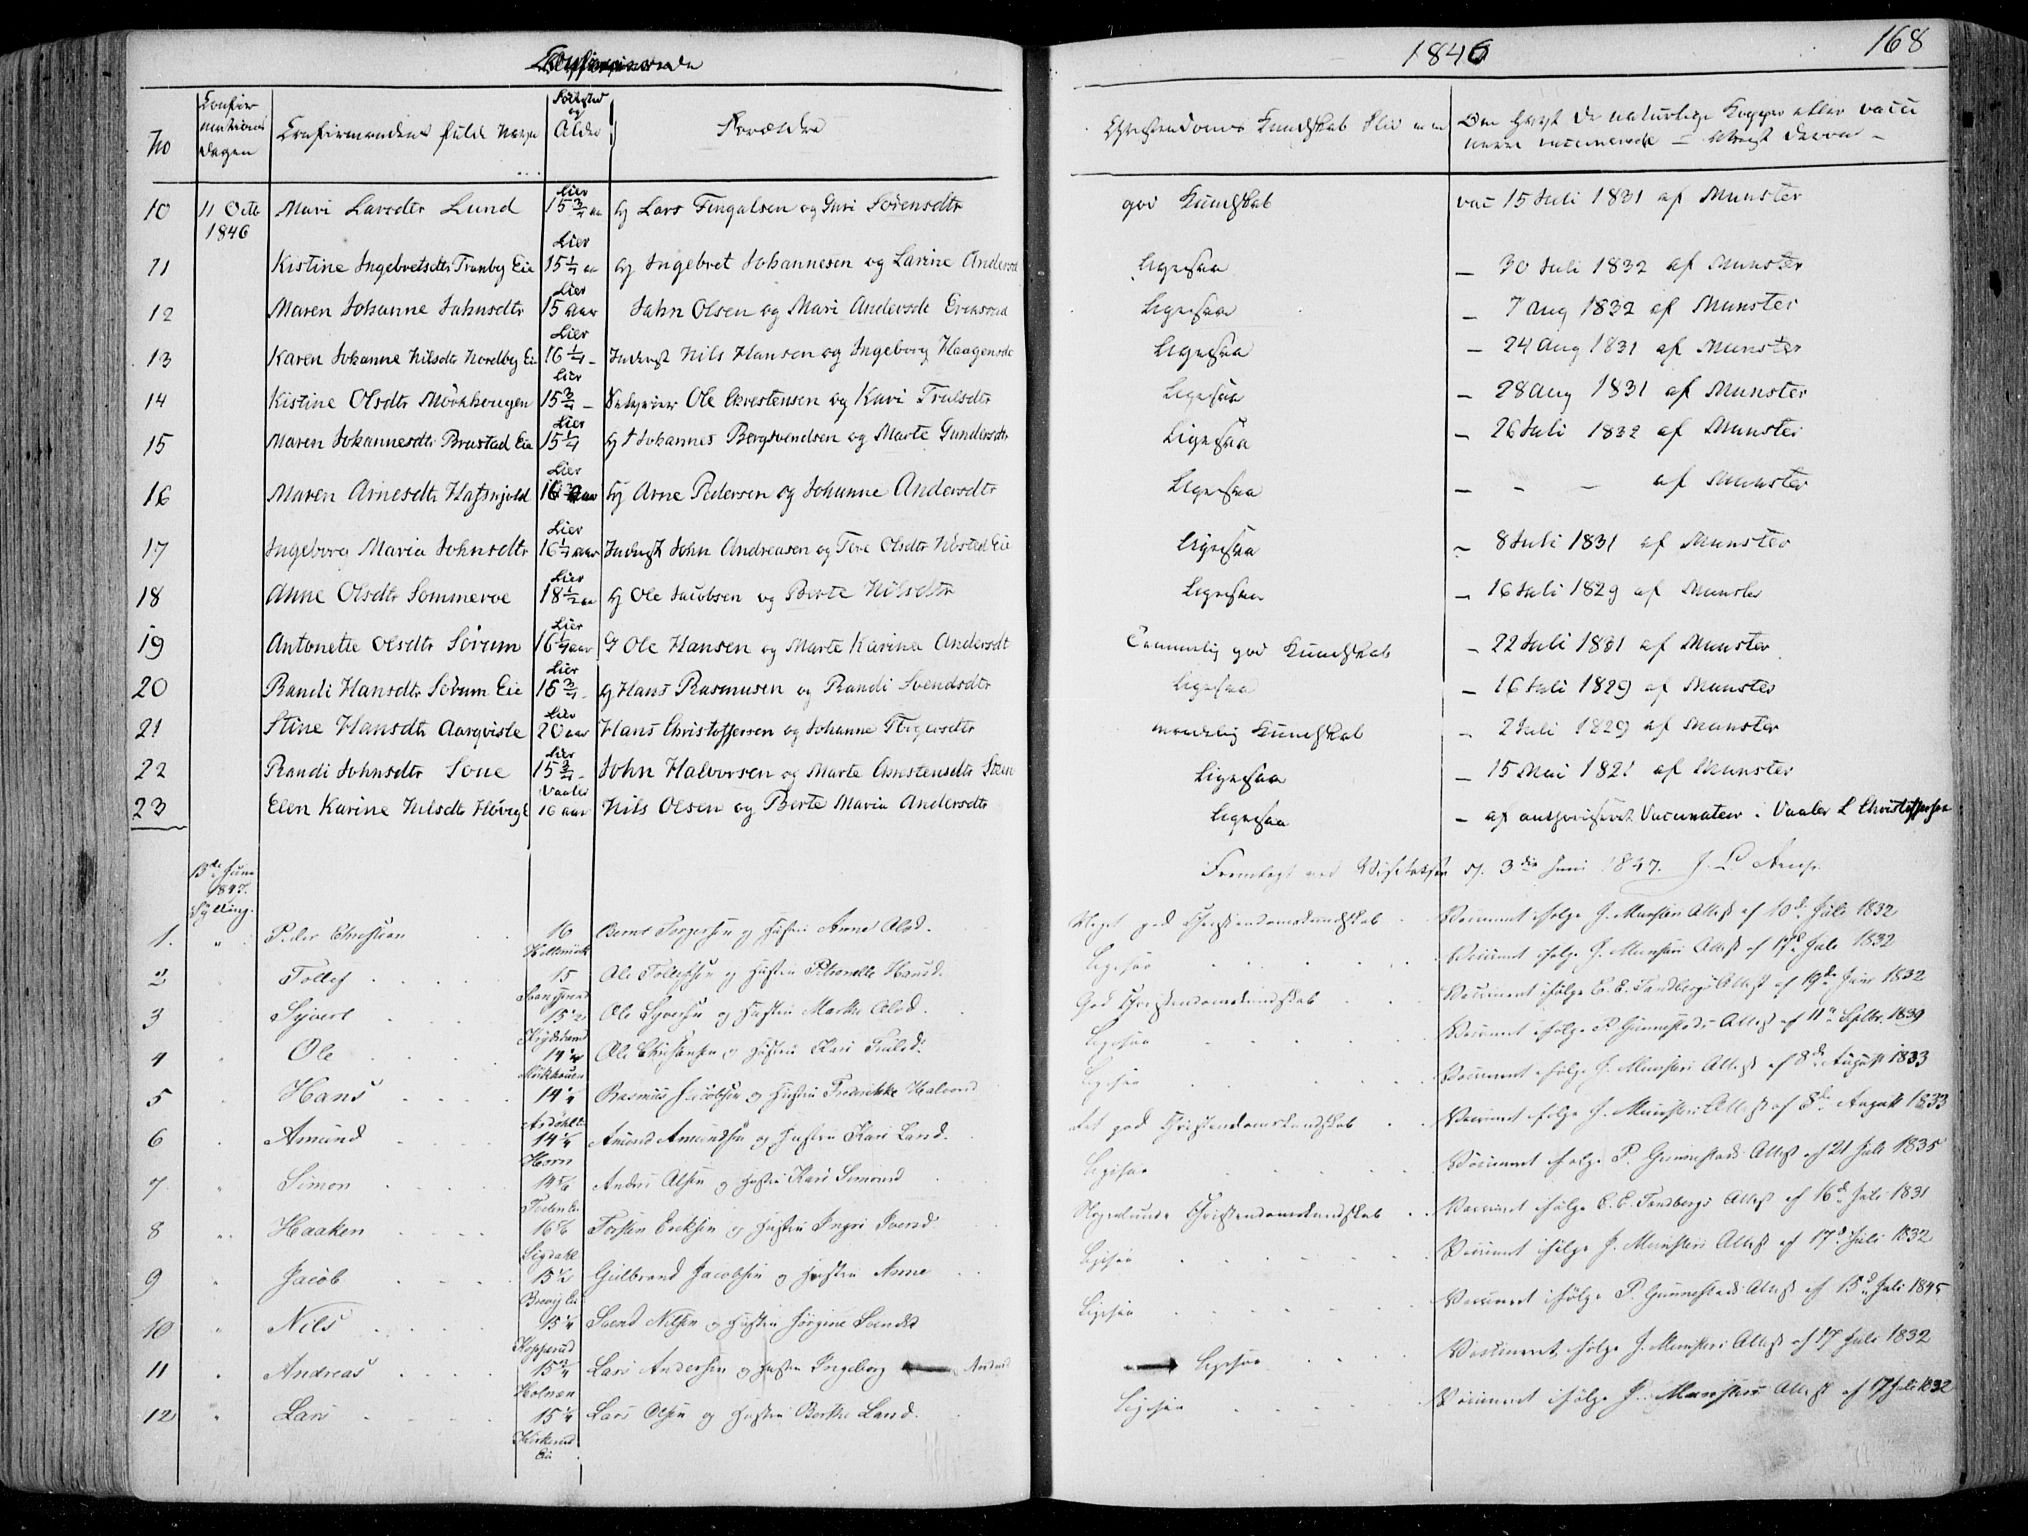 1846 168
No
Confir-
mations
dagen
Confirmandens fuld Navn
Fødested
og
Alder
Forældre
Christendoms Kundskab
Om havt de naturlige Kopper eller vacci
10 11 Octb Mari Larsdtr Lund Lier 15 3/4 aa Lars Fingalsen og Guri Sørensdtr god Kundskab vac 15 Juli 1831 af Munster
1846
11 Kistine Ingebretsdtr Tranby Eie Lier 15 1/4 aa Ingebret Johannesen og Larine Andersd Ligesaa – 30 Juli 1832 af Munster
12 Maren Johanne Jahnsdtr Lier 15 Aar Jahn Olsen og Mari Andersdt Ligesaa – 7 Aug 1832 af Munster
13 Karen Johanne Nilsdtr Nordby Ei Lier 16 1/4 – Inderst Nils Hansen og Ingeborg Haagensdt Ligesaa – 24 Aug 1831 af Munster
14 Kistine Olsdtr Mörkhougen Lier 15 3/4 – Ole Christensen og Kari Trulsdtr Ligesaa – 28 Aug 1831 af Munster
15 Maren Johannesdtr Brastad Eie Lier 15 1/4 Johannes Bergsvendsen og Marte Gundersdtr Ligesaa – 26 Juli 1832 af Munster
16 Maren Arnesdtr Lier 16 Aar Arne Pedersen og Johanne Andersdtr Ligesaa – – – af Munster
17 Ingeborg Maria Johnsdtr Lier 16 1/4 aar Inderst John Andreasen og Tore Olsdtr Eie Ligesaa – 8 Juli 1831 af Munster
18 Anne Olsdtr Sommeroe Lier 18 1/2 aa Ole Jacobsen og Berte Nilsdtr Ligesaa – 16 Juli 1829 af Munster
19 Antonette Olsdtr Sörum Lier 16 1/4 aar Ole Hansen og Marte Karine Andersdt Temmelig god Kundskab – 22 Juli 1831 af Munster
20 Randi Hansdtr Sörum Eie Lier 15 3/4 – Hans Rasmusen og Randi Svendsdtr Ligesaa – 16 Juli 1829 af Munster
21 Stine Hansdtr Aarqvisle Lier 20 aar Hans Christoffersen og Johanne maadelig Kundskab – 2 Juli 1829 af Munster
22 Randi Johnsdtr Lier 15 3/4 – John Halvorsen og Marte Ligesaa – 15 Mai af Munster
23 Elen Karine Nilsdtr Vaaler 16 aar Nils Olsen og Berte Maria Andersdtr Ligesaa – af authoriseret Vaccinateur i Vaaler L Christophersen
13de Juni
1847.
Sylling.
Fremlagt ved Visitatsen d. 3die Juni 1847.
1. " Peder Christian 16 Bernt Torgersen og Hustru Anne Olsd. Meget god Christendomskundskab Vaccineret ifølge J. Munsters Attest af 10de Juli 1832
2 " Tollef 15 Ole Tollefsen og Hustru Petronelle Hansd. Ligesaa Vaccineret ifølge J. Munsters Attest af 17de Juli 1832
3 " Syvert 15 1/2 Ole Syversen og Hustru Marthe Olsd. God Christendomskundskab Vaccineret ifølge C. E. Tandbergs Attest af 19de Juni 1832
4 " Ole 14 Ole Christensen og Hustru Kari Trulsd. Ligesaa Vaccineret ifølge P. Gunnestads Attest af 11te Septbr. 1839
Mörkhouen
5 " Hans 14 Rasmus Jacobsen og Hustru Frederikke Halvorsd. Ligesaa Vaccineret ifølge J. Munsters Attest af 8de August 1833
6 " Amund 14 1/4 Amund Amundsen og Hustru Kari Larsd. god Christendomskundskab Vaccineret ifølge J. Munsters Attest af 8de August 1833
Horn
7 " Simon 14 5/6 Anders Olsen og Hustru Kari Simonsd Ligesaa Vaccineret ifølge P. Gunnestads Attest af 21 Juli 1835
8 " Haaken 16 Torsten Eriksen og Hustru Ingri Iversd. Christendomskundskab Vaccineret ifølge C. E. Tandbergs Attest af 16de Juli 1831
Sigdahl
9 " Jacob 15 1/2 Gulbrand Jacobsen og Hustru Anne Ligesaa Vaccineret ifølge J. Munsters Attest af 17de Juli 1832
10 " Nils 15 1/4 Svend Nilsen og Hustru Jörgine Ligesaa Vaccineret ifølge P. Gunnestads Attest af 15de Juli 1845
Kopperud
11 " Andreas 15 3/4 Lars Andersen og Hustru Ingeborg Ligesaa Vaccineret ifølge J. Munsters Attest af 17 Juli 1832
12 " Lars 15 1/4 Lars Olsen og Hustru Berthe Larsd. Ligesaa Vaccineret ifølge J. Munsters Attest af 17 Juli 1832
Kirkerud
Eie